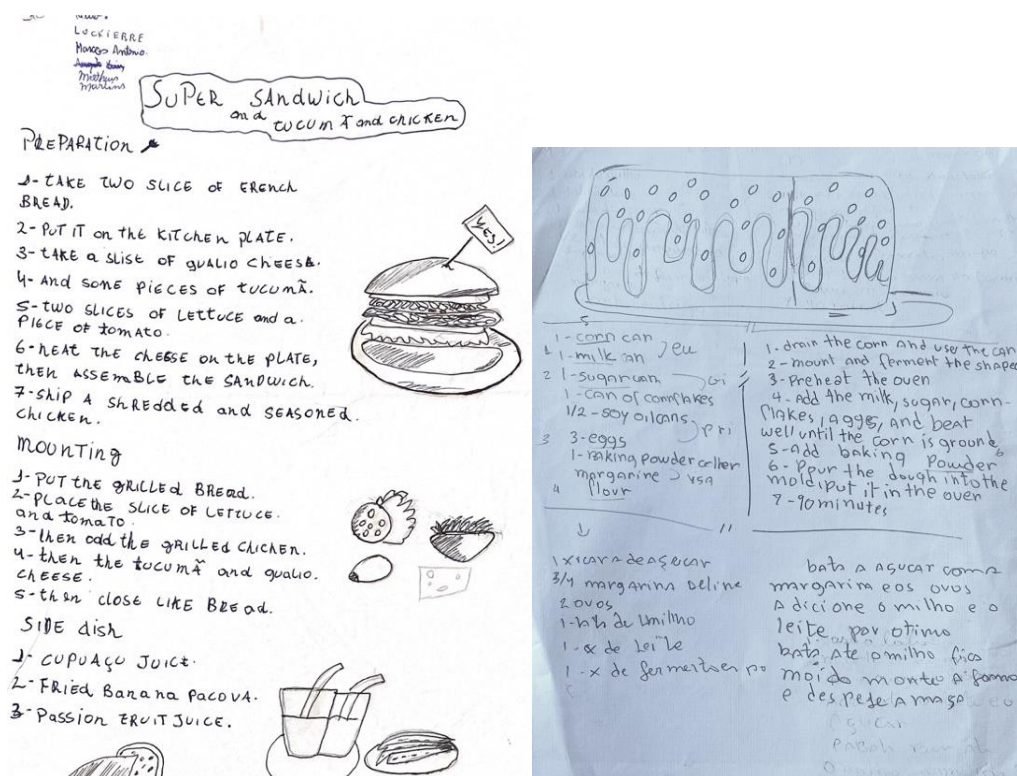 LUCKIERRE
Marcos Antonio.
Matheus
Martins
SUPER SANdwich
and
tucumÃ and chicken
PREPARATION
1- TAKE TWO SLICE OF FRENCH
BREAD.
2- PUT IT ON the KITCHEN PLATE.
3- tAKE A SLISE OF gUALIO CHEESE.
4- And SOME PIECES OF tUCUMÃ.
5- TWO SLICES OF LETTUCE and a
PIECE OF tOMATO.
6- HEAT THE CHEESE ON the PLATE,
then ASSEMBLE THE SANDWICH.
7- SKIP A SHREDDED and SEASONED
CHICKEN.
YES!
MOUNTING
1- PUT the gRILLEd BREad.
2- PLACE the SLICE OF LETTUCE.
and tomato.
3- then add the gRILLEd CHICKEN.
4- then the tUCUMÃ and gualio
CHEESE.
5- then CLOSE LIKE BREad.
SIDE dish
1- CUPUAÇU JUICE.
2- FRIED Banana PACOVA.
3- Passion FRUIT JUICE.
1 - corn can
1 - milk can } eu
1 - sugar can
1 - can of cornflakes
1/2 - soy oil cans } pri
3 - eggs
1 - baking powder
margarine
flour
1 - drain the corn and use the can
2 - mount and ferment the shape
3 - Preheat the oven
4 - Add the milk, sugar, corn-
flakes, aggs, and beat
well until the corn is ground
5 - add baking Powder
6 - Pour the dough into the
mold, put it in the oven
7 - 90 minutes
1 xicara de açucar
3/4 margarina Deline
2 ovos
1 - de milho
1 - x de leite
1 - x de
bata a açucar coma
margarina e os ovos
Adicione o milho e o
leite por otimo
bata ate o milho fica
moido monte A forma
e despeje A masa
açucar